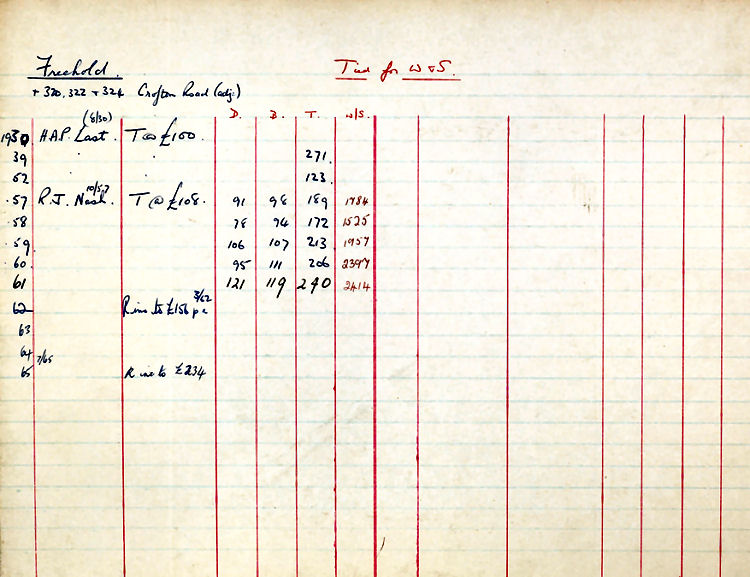 Freehold. Tied for W & S.
+ 320, 322 + 324 Crofton Road (adj:)
D. B. T. W/S.
(8/30)
1930 H.A.P. Last. T @ £100.
39 " " 271.
52 123.
10/57
.57 R.J. Nash. T @ £108. 91 98 189 1784
.58 78 94 172 1525
.59 106 107 213 1957
.60. 95 111 206 2397
61 121 119 240 2414
3/62
62 R inc to £156 p a
63
64
7/65
65 R inc to £234